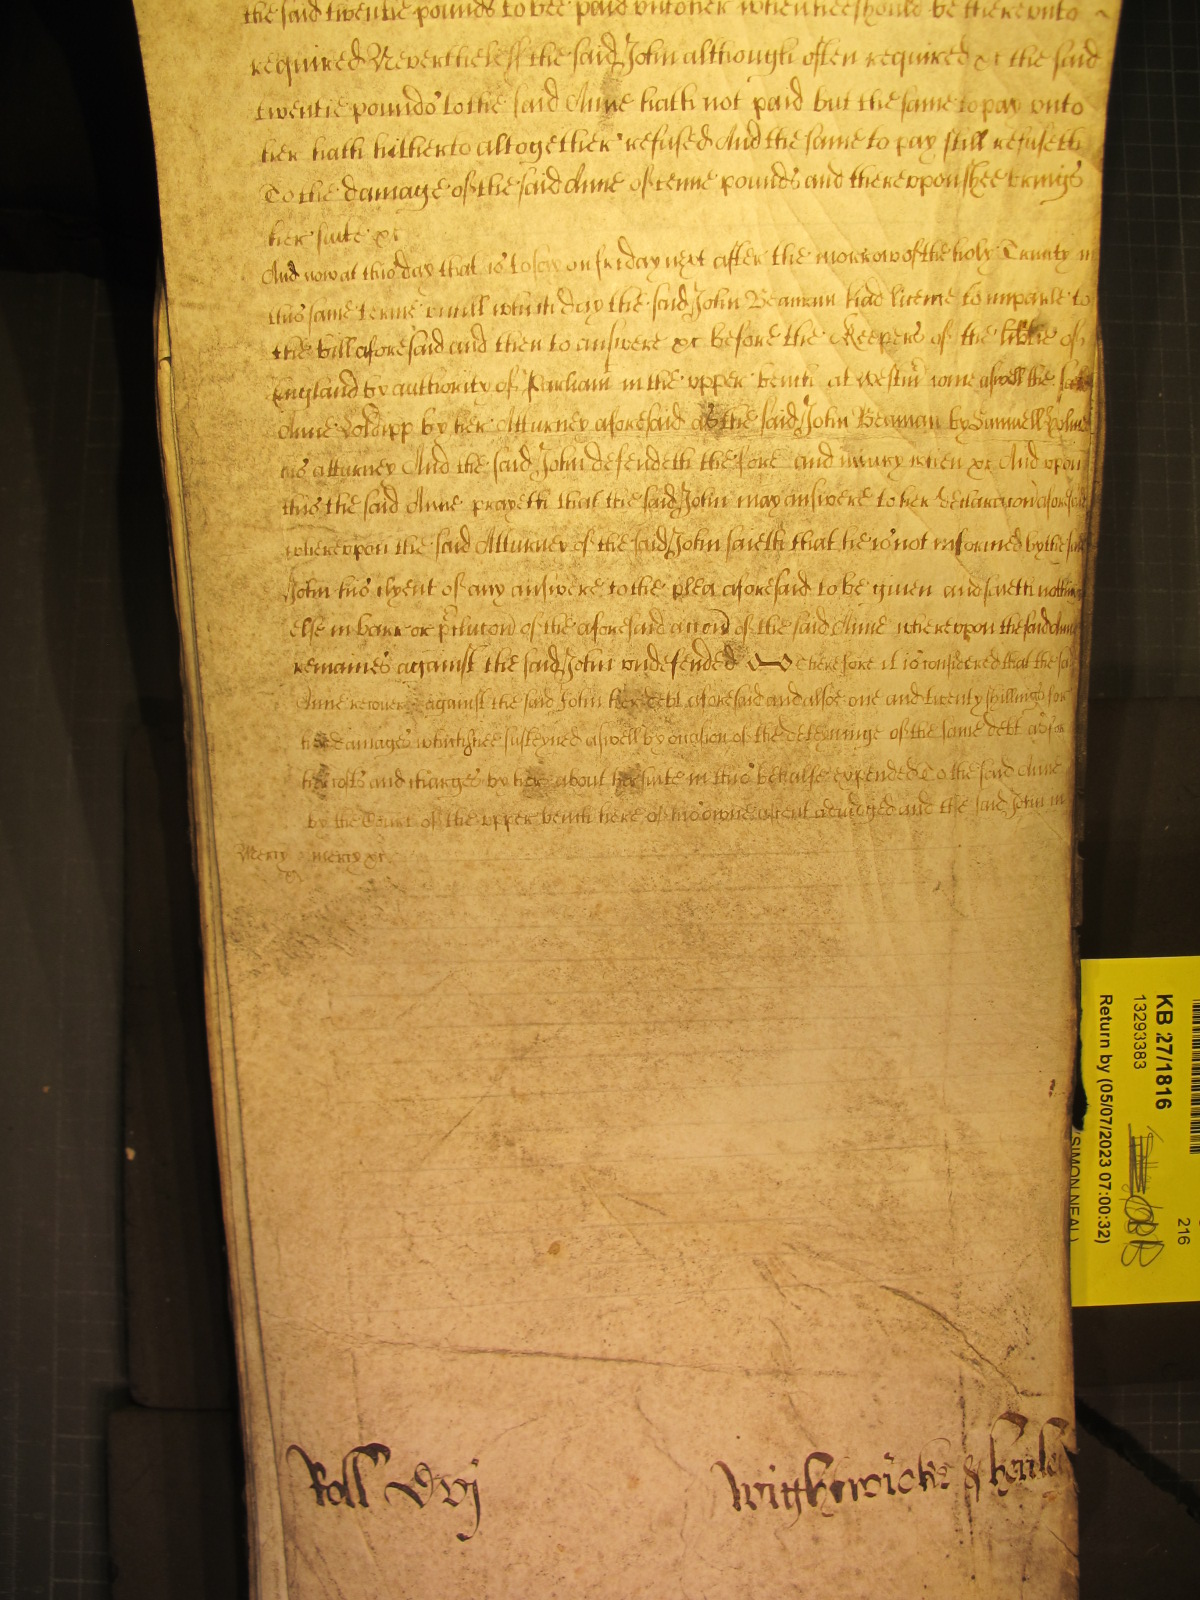 the said twentie pounds to bee paid unto her when hee should be thereunto
required Neverthelesse the said John although often required &c the said
twentie pounds to the said Anne hath not paid but the same to pay unto
her hath hitherto altogether refused And the same to pay still refuseth
To the damage of the said Anne of tenne pounds and thereupon shee brings
her suite &c
And now at this day that is to say on friday next after the morrow of the holy Trinity in
this same terme untill which day the said John Beaman had licence to imparle to
the bill aforesaid and then to answere &c before the Keepers of the libtie of
England by authority of Parliamt in the upper bench at Westmr come aswell the said
Anne by her Atturney aforesaid as the said John Beaman by Samuell
his atturney And the said John defendeth the force and iniury when &c And upon
this the said Anne prayeth that the said John may answere to her declaracon aforesaid
whereupon the said Atturney of the said John saieth that he is not informed by the said
John his clyent of any answere to the plea aforesaid to be given and saieth nothing
else in barr or pclusion of the aforesaid accon of the said Anne whereupon the said Anne
remaines against the said John undefended Therefore it is considered that the said
Anne recover against the said John her debt aforesaid and alsoe one and twenty shillings for
her damages which shee susteyned aswell by occasion of the deteyninge of the same debt as for
her costs and charges by her about her suite in this behalfe expended To the said Anne
by the Court of the upper bench here of his owne assent adiudged and the said John in
Mercy mercy &c
Roll Dvj
Wightwicke &
KB 27/1816
13293383
Return by (05/07/2023 07:00:32)
(SIMON NEAL)
216